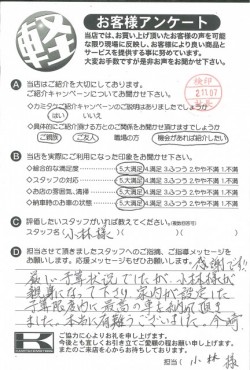 軽
お客様アンケート
当店では、お買い上げ頂いたお客様の声を可能
な限り現場に反映し、お客様により良い商品と
サービスを提供する事に努めています。
大変お手数ですが是非お声をお聞かせ下さい。
A 当店はご紹介を大切にしております。
ご紹介キャンペーンについてお聞かせ下さい。
カミタケご紹介キャンペーンのご説明はありましたでしょうか
はい いいえ
具体的にご紹介頂ける方とのご関係をお聞かせ頂けますでしょうか
ご親族 ご友人 職場の方 機会があれば紹介したい
B 当店を実際にご利用になった印象をお聞かせ下さい。
総合的な満足度 5.大満足 4.満足 3.ふつう 2.やや不満 1.不満
スタッフの対応 5.大満足 4.満足 3.ふつう 2.やや不満 1.不満
お店の雰囲気、清掃 5.大満足 4.満足 3.ふつう 2.やや不満 1.不満
納車時のお車の状態 5.大満足 4.満足 3.ふつう 2.やや不満 1.不満
C 評価したいスタッフがいれば教えてください。
スタッフ名( 小林様 )
D 担当させて頂きましたスタッフへのご指摘、ご指導メッセージを
お願いします。応援メッセージもぜひお願いします。
感謝です!!
厳しい予算状況でしたが、小林様が
親身になって下さり、案内が設定した
予算範囲内に最高の車を納めて頂き
ました。本当に有難うございました。今崎
K
ご協力に心よりお礼を申し上げます。
今後とも宜しくお引き立てご愛顧の程お願い申し上げます。
またのご来店を心からお待ちしております。
担当( 小林 様